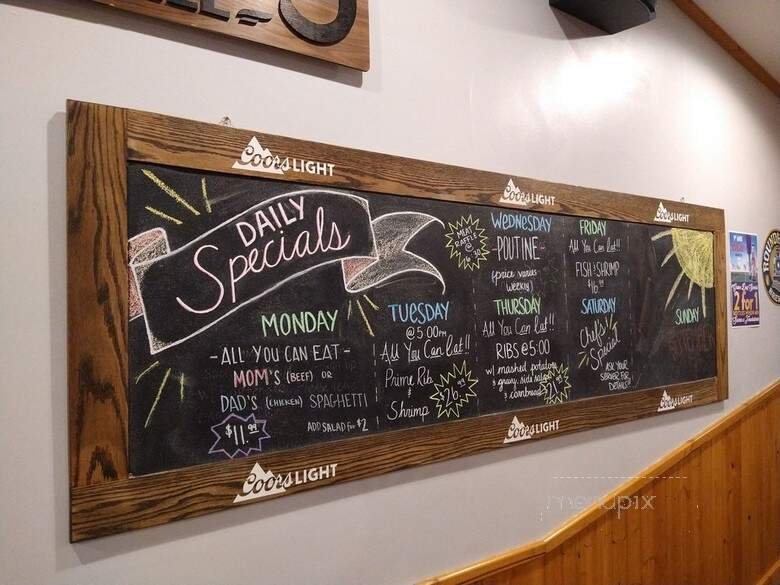 Coors LIGHT
Coors LIGHT
Coors LIGHT
DAILY
Specials
MONDAY
-ALL YOU CAN EAT-
MOM'S (BEEF) OR
DAD'S (CHICKEN) SPAGHETTI
$11.99
ADD SALAD FOR $2
TUESDAY
@ 5:00PM
All You Can Eat!!
Prime Rib
&
Shrimp
$26.99
MEAT
RAFFLE
@
WEDNESDAY
-POUTINE-
(price varies
weekly)
THURSDAY
All You Can Eat!!
RIBS @ 5:00
w/ mashed potatoes
& gravy, side salad
& cornbread
FRIDAY
All You Can Eat!!
FISH & SHRIMP
$16.99
SATURDAY
Chef's
Special
ASK YOUR
SERVER FOR
DETAILS!!
SUNDAY
Coors LIGHT
Coors LIGHT
Coors LIGHT
2 for 1
menupix